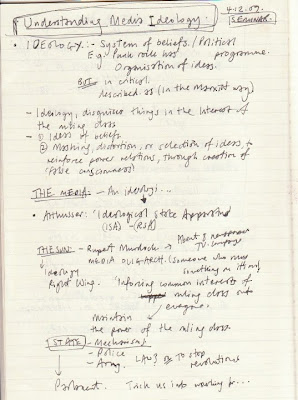 Understanding Media Ideology.
4.12.09.
SEMINAR
• IDEOLOGY:- System of beliefs / Political
E.g. Punk rock has programme.
Organisation of ideas.
BUT in critical
described as (in the Marxist way)
- Ideology, disguises things in the interest of
the ruling class
- ① Ideas of beliefs
② Masking, distortion, or selection of ideas, to
reinforce power relations, through creation of
'false consciousness'
THE MEDIA - An ideology...
• Althusser: 'Ideological State Apparatus
(ISA) - (RSA)
THE SUN - Rupert Murdoch → Planet & newspapers
TV company
MEDIA OLIGARCH. (Someone who runs
something on its own)
Ideology
Right Wing. 'Informing common interests of
ruling class onto
everyone.
Maintain
the power of the ruling class
STATE - Mechanisms
- Police
- Army. LAWS to stop
revolutions
Parliament. Trick us into working for...